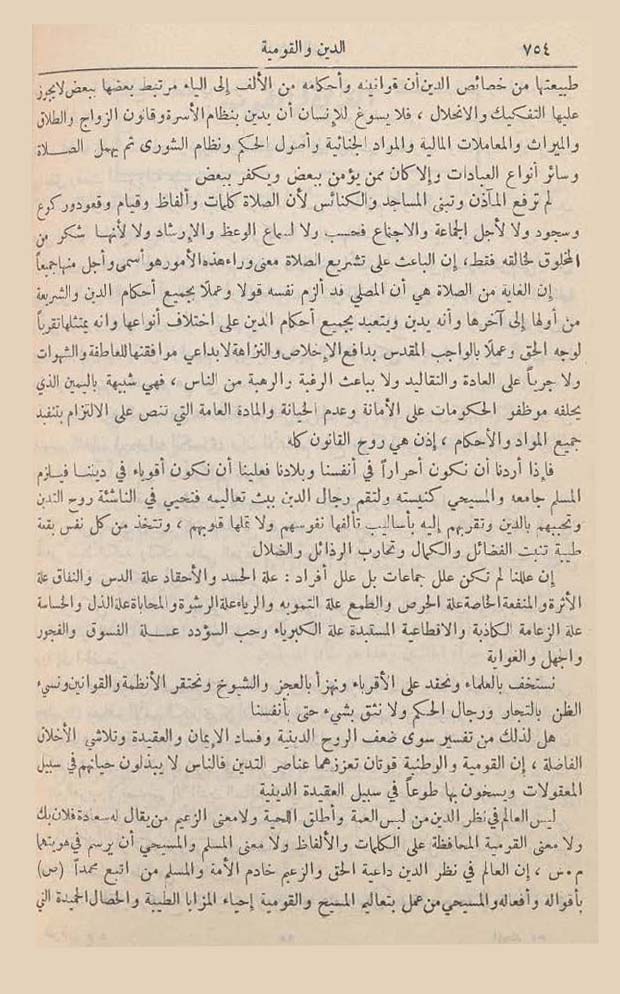 ٧٥٤ الدين والقومية
طبيعتها من خصائص الدين أن قوانينه وأحكامه من الألف إلى الياء مرتبط بعضها ببعض لا يجوز
عليها التفكيك والانحلال ، فلا يسوغ للإنسان أن يدين بنظام الأسرة وقانون الزواج والطلاق
والميراث والمعاملات المالية والمواد الجنائية وأصول الحكم ونظام الشورى ثم يهمل الصلاة
وسائر أنواع العبادات وإلا كان ممن يؤمن ببعض ويكفر ببعض
لم ترفع المآذن وتبنى المساجد والكنائس لأن الصلاة كلمات وألفاظ وقيام وقعود وركوع
وسجود ولا لأجل الجماعة والاجتماع فحسب ولا لسماع الوعظ والإرشاد ولا لأنها شكر من
المخلوق لخالقه فقط، إن الباعث على تشريع الصلاة معنى وراء هذه الأمور هو أسمى وأجل منها جميعاً
إن الغاية من الصلاة هي أن المصلي قد ألزم نفسه قولا وعملاً بجميع أحكام الدين والشريعة
من أولها إلى آخرها وأنه يدين ويتعبد بجميع أحكام الدين على اختلاف أنواعها وانه يمتثلها تقرباً
لوجه الحق وعملاً بالواجب المقدس بدافع الإخلاص والنزاهة لا بداعي موافقتها للعاطفة والشهوات
ولا جرياً على العادة والتقاليد ولا بباعث الرغبة والرهبة من الناس ، فهي شبيهة باليمين الذي
يحلفه موظفو الحكومات على الأمانة وعدم الخيانة والمادة العامة التي تنص على الالتزام بتنفيذ
جميع المواد والأحكام ، إذن هي روح القانون كله
فإذا أردنا أن نكون أحراراً في أنفسنا وبلادنا فعلينا أن نكون أقوياء في ديننا فيلزم
المسلم جامعه والمسيحي كنيسته ولتقم رجال الدين ببث تعاليمه فتحيي في الناشئة روح التدين
وتحببهم بالدين وتقربهم إليه بأساليب تألفها نفوسهم ولا تملها قلوبهم ، وتتخذ من كل نفس بقعة
طيبة تنبت الفضائل والكمال وتحارب الرذائل والضلال
إن عللنا لم تكن علل جماعات بل علل أفراد : علة الحسد والأحقاد علة الدس والنفاق علة
الأثرة والمنفعة الخاصة علة الحرص والطمع علة التمويه والرياء علة الرشوة والمحاباة علة الذل والخساسة
علة الزعامة الكاذبة والاقطاعية المستبدة علة الكبرياء وحب السؤدد عـلـة الفسوق والفجور
والجهل والغواية
نستخف بالعلماء ونحقد على الأقرباء ونهزأ بالعجز والشيوخ ونحتقر الأنظمة والقوانين ونسيء
الظن بالتجار ورجال الحكم ولا نثق بشيء حتى بأنفسنا
هل لذلك من تفسير سوى ضعف الروح الدينية وفساد الإيمان والعقيدة وتلاشي الأخلاق
الفاضلة ، إن القومية والوطنية قوتان تعززهما عناصر التدين فالناس لا يبذلون حياتهم في سبيل
المعقولات ويسخون بها طوعاً في سبيل العقيدة الدينية
ليس العالم في نظر الدين من لبس العمة وأطلق اللحية ولا معنى الزعيم من يقال له سعادة فلان بك
ولا معنى القومية المحافظة على الكلمات والألفاظ ولا معنى المسلم والمسيحي أن يرسم في هويتهما
إن العالم في نظر الدين داعية الحق والزعيم خادم الأمة والمسلم من اتبع محمداً (ص)
بأقواله وأفعاله والمسيحي من عمل بتعاليم المسيح والقومية إحياء المزايا الطيبة والخصال الحميدة التي